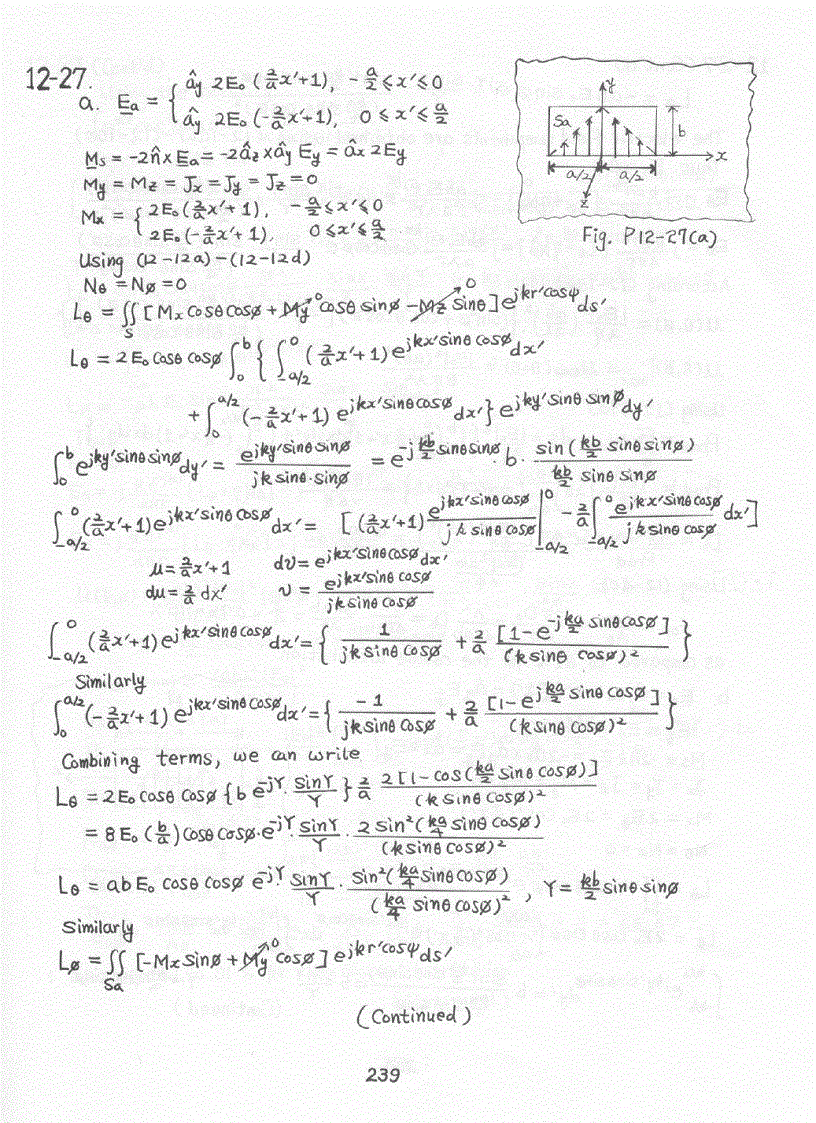 12-27.
a. E̲a = { ây 2E₀ (2/a x′+1), -a/2 ≤ x′ ≤ 0
ây 2E₀ (-2/a x′+1), 0 ≤ x′ ≤ a/2
M̲s = -2n̂ × E̲a = -2âz × ây Ey = âx 2Ey
My = Mz = Jx = Jy = Jz = 0
Mx = { 2E₀ (2/a x′+1), -a/2 ≤ x′ ≤ 0
2E₀ (-2/a x′+1), 0 ≤ x′ ≤ a/2
y
Sa
b
x
a/2 a/2
z
Fig. P12-27(a)
Using (12-12a)-(12-12d)
Nθ = Nø = 0
Lθ = ∬_S [Mx cosθ cosø + My⁰ cosθ sinø - Mz⁰ sinθ] e^{jkr′cosψ} ds′
Lθ = 2E₀ cosθ cosø ∫_0^b { ∫_{-a/2}^0 (2/a x′+1) e^{jkx′sinθcosø} dx′
+ ∫_0^{a/2} (-2/a x′+1) e^{jkx′sinθcosø} dx′ } e^{jky′sinθ sinø} dy′
∫_0^b e^{jky′sinθsinø} dy′ = e^{jky′sinθsinø} / (jk sinθ·sinø) = e^{j kb/2 sinθsinø} · b · sin(kb/2 sinθsinø) / (kb/2 sinθ sinø)
∫_{-a/2}^0 (2/a x′+1) e^{jkx′sinθcosø} dx′ = [(2/a x′+1) e^{jkx′sinθcosø} / (jk sinθ cosø) |_{-a/2}^0 - 2/a ∫_{-a/2}^0 e^{jkx′sinθcosø} / (jk sinθ cosø) dx′]
u = 2/a x′+1 dv = e^{jkx′sinθcosø} dx′
du = 2/a dx′ v = e^{jkx′sinθ cosø} / (jk sinθ cosø)
∫_{-a/2}^0 (2/a x′+1) e^{jkx′sinθcosø} dx′ = { 1 / (jk sinθ cosø) + 2/a [1-e^{-j ka/2 sinθcosø}] / (k sinθ cosø)² }
Similarly
∫_0^{a/2} (-2/a x′+1) e^{jkx′sinθcosø} dx′ = { -1 / (jk sinθ cosø) + 2/a [1-e^{j ka/2 sinθ cosø}] / (k sinθ cosø)² }
Combining terms, we can write
Lθ = 2E₀ cosθ cosø { b e^{-jY} · sinY / Y } 2/a 2[1-cos(ka/2 sinθ cosø)] / (k sinθ cosø)²
= 8E₀ (b/a) cosθ cosø · e^{-jY} · sinY / Y · 2 sin²(ka/4 sinθ cosø) / (k sinθ cosø)²
Lθ = ab E₀ cosθ cosø e^{-jY} · sinY / Y · sin²(ka/4 sinθcosø) / (ka/4 sinθ cosø)², Y = kb/2 sinθ sinø
Similarly
Lø = ∬_{Sa} [-Mx sinø + My⁰ cosø] e^{jkr′cosψ} ds′
(Continued)
239